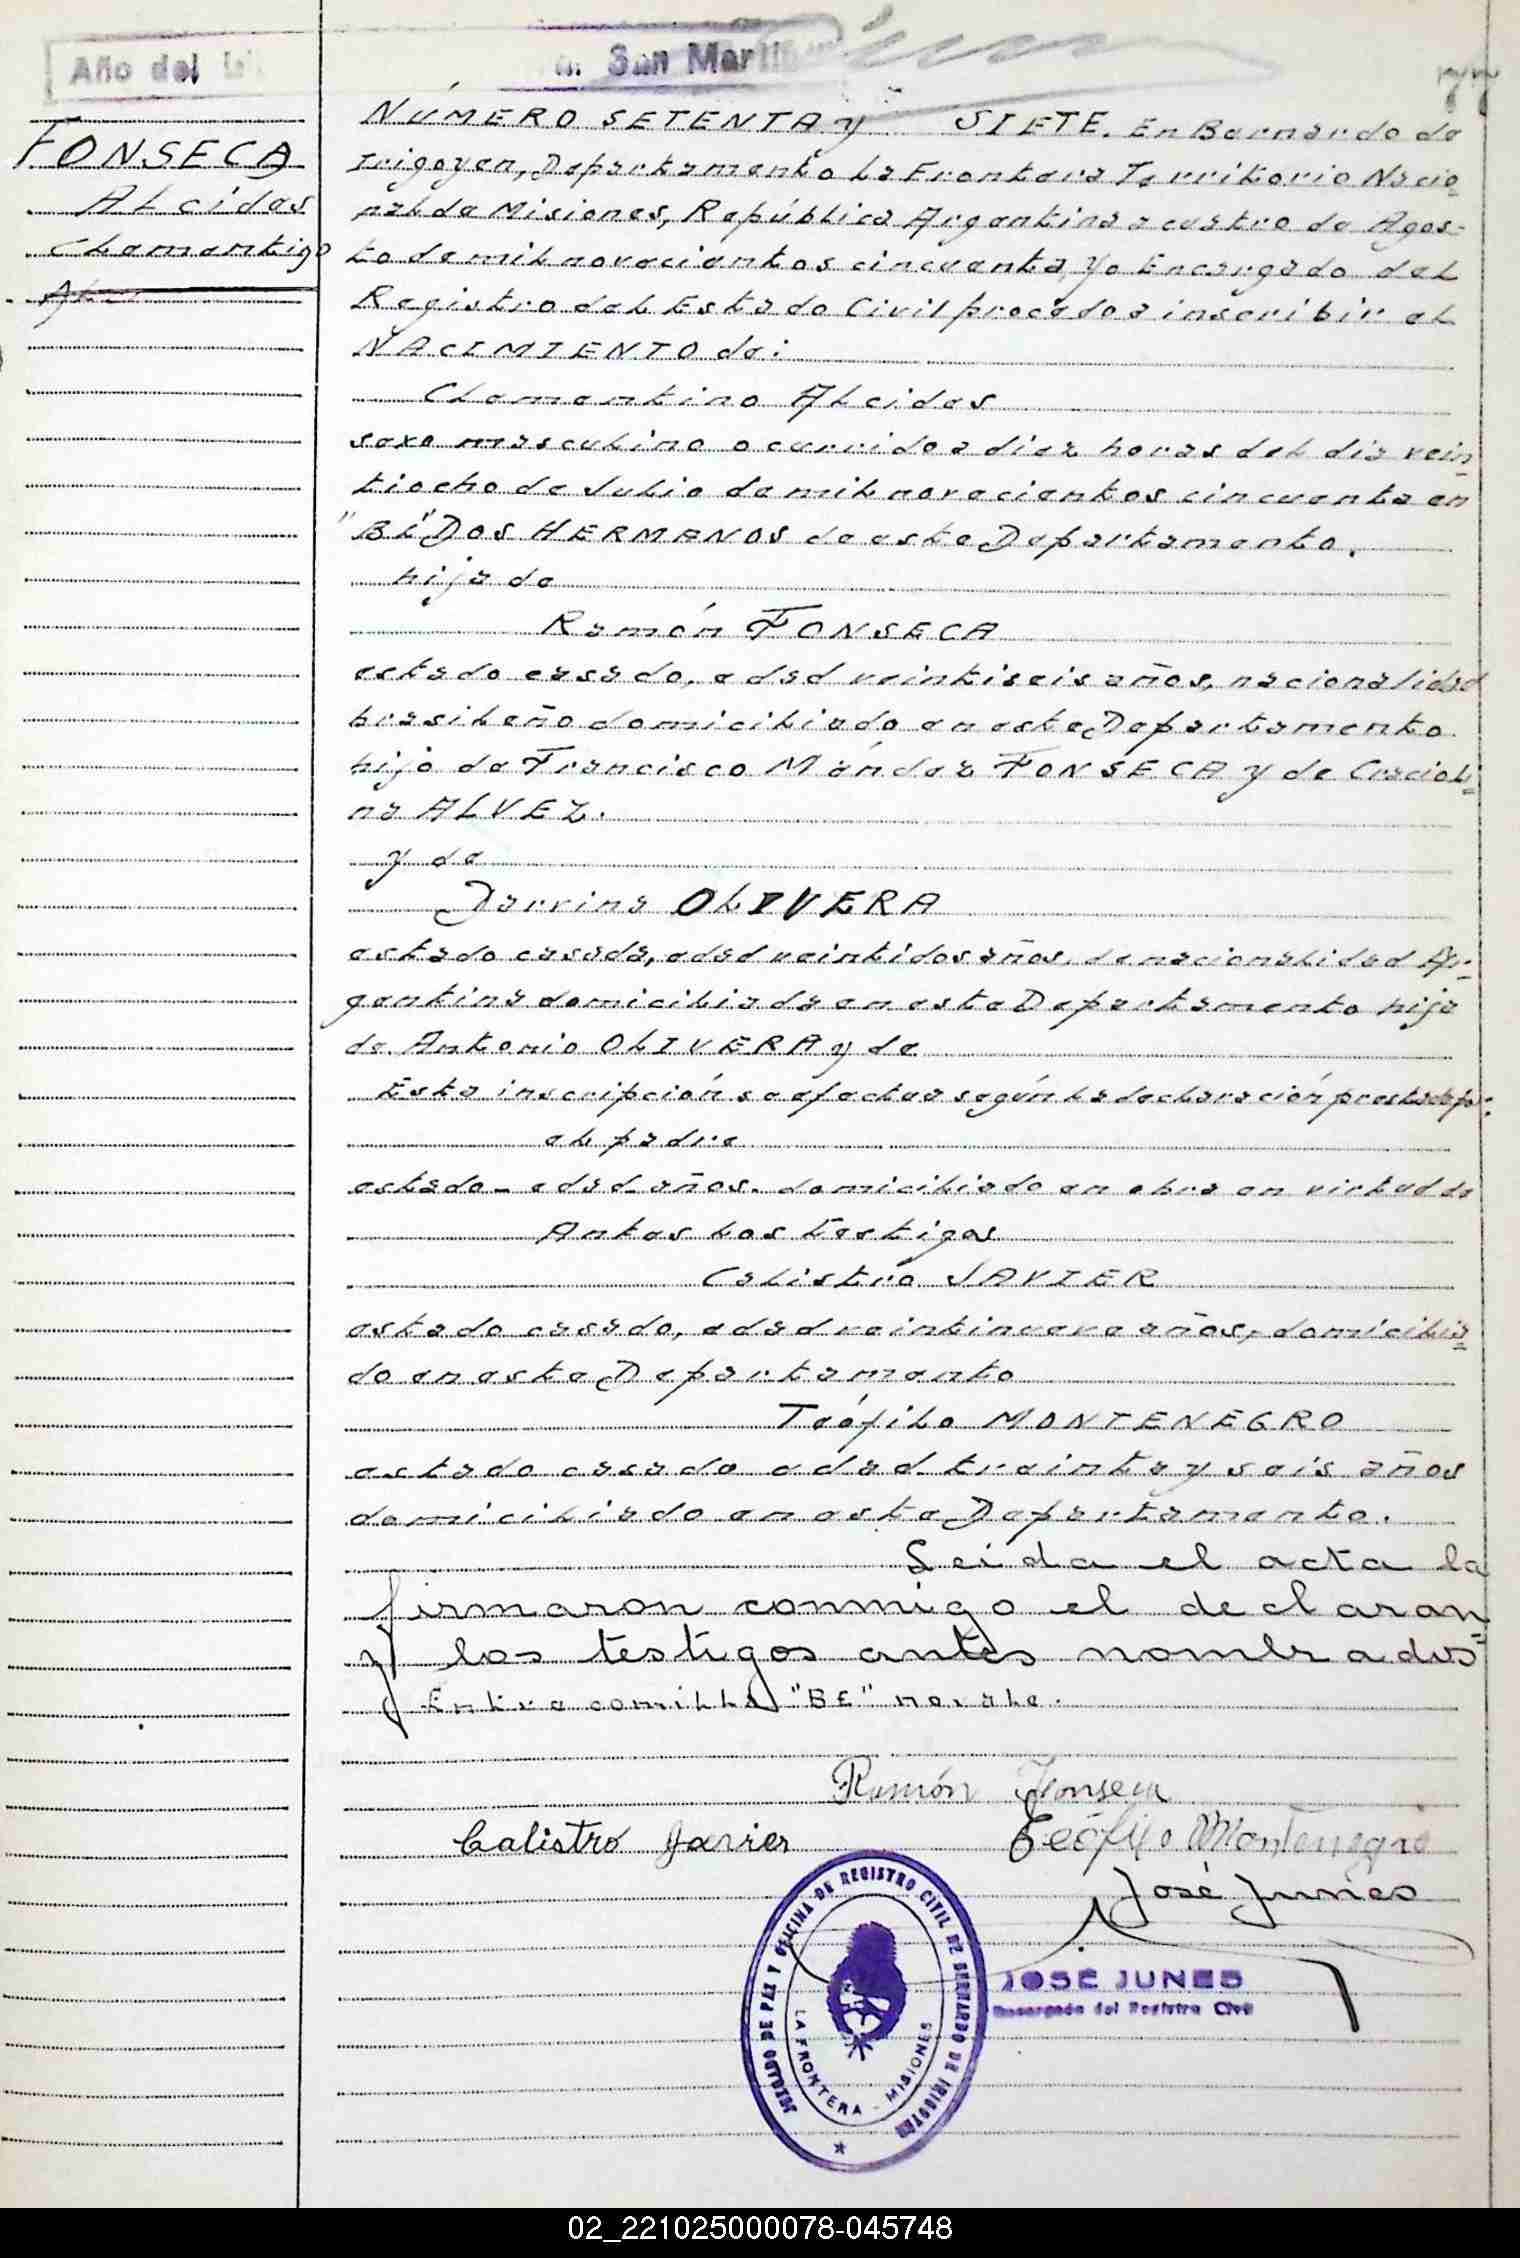 Año del
San Martín
FONSECA
Alcides
Clementino
NÚMERO SETENTA y SIETE. En Bernardo de
Irigoyen, Departamento La Frontera Territorio Nacio-
nal de Misiones, República Argentina a cuatro de Agos-
to de mil novecientos cincuenta, yo Encargado del
Registro del Estado Civil procedo a inscribir el
NACIMIENTO de:
Clementino Alcides
sexo masculino ocurrido a diez horas del dia vein-
tiocho de Julio de mil novecientos cincuenta en
"BE" DOS HERMANOS de este Departamento.
hijo de
Ramón FONSECA
estado casado, edad veintiseis años, nacionalidad
brasileño domiciliado en este Departamento
hijo de Francisco Méndez FONSECA y de
na ALVEZ.
y de
Darvina OLIVERA
estado casada, edad veintidos años, de nacionalidad Ar-
gentina domiciliada en este Departamento hija
de Antonio OLIVERA y de
Esta inscripción se efectua según la declaración prestada por:
el padre
estado - edad - años. domiciliado en obra en virtud de
Antes los Testigos
Calistro JAVIER
estado casado, edad veintinueve años, domicilia-
do en este Departamento
Teófilo MONTENEGRO
estado casado edad treinta y seis años
domiciliado en este Departamento.
Leida el acta la
firmaron conmigo el declaran
y los testigos antes nombrados=
Entre comilla "BE" no vale.
Ramón Fonseca
Calistro Javier
Teófilo Montenegro
José Junes
JOSÉ JUNES
Encargado del Registro Civil
JUZGADO DE PAZ Y OFICINA DE REGISTRO CIVIL DE BERNARDO DE IRIGOYEN
LA FRONTERA - MISIONES
02_221025000078-045748